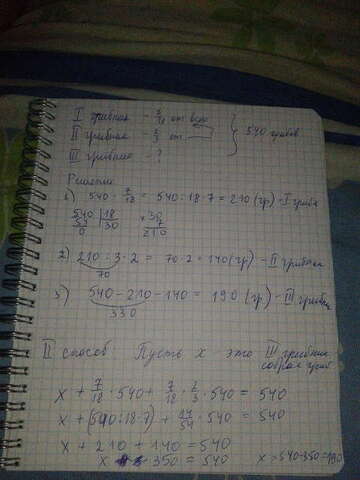 I грибник - 7/18 от всех
II грибник - 2/3 от
III грибник - ?
} 540 грибов
Решение
1) 540 · 7/18 = 540 : 18 · 7 = 210 (гр) - I грибн
540 | 18
54 | 30
0
× 30
7
210
2) 210 : 3 · 2 = 70 · 2 = 140 (гр) - II грибник
70
3) 540 - 210 - 140 = 190 (гр) - III грибник
330
II способ: Пусть x - это III грибник
собрал гриб
x + 7/18 · 540 + 7/18 · 2/3 · 540 = 540
x + (540 : 18 · 7) + 14/54 · 540 = 540
x + 210 + 140 = 540
x + 350 = 540 x = 540 - 350 = 190